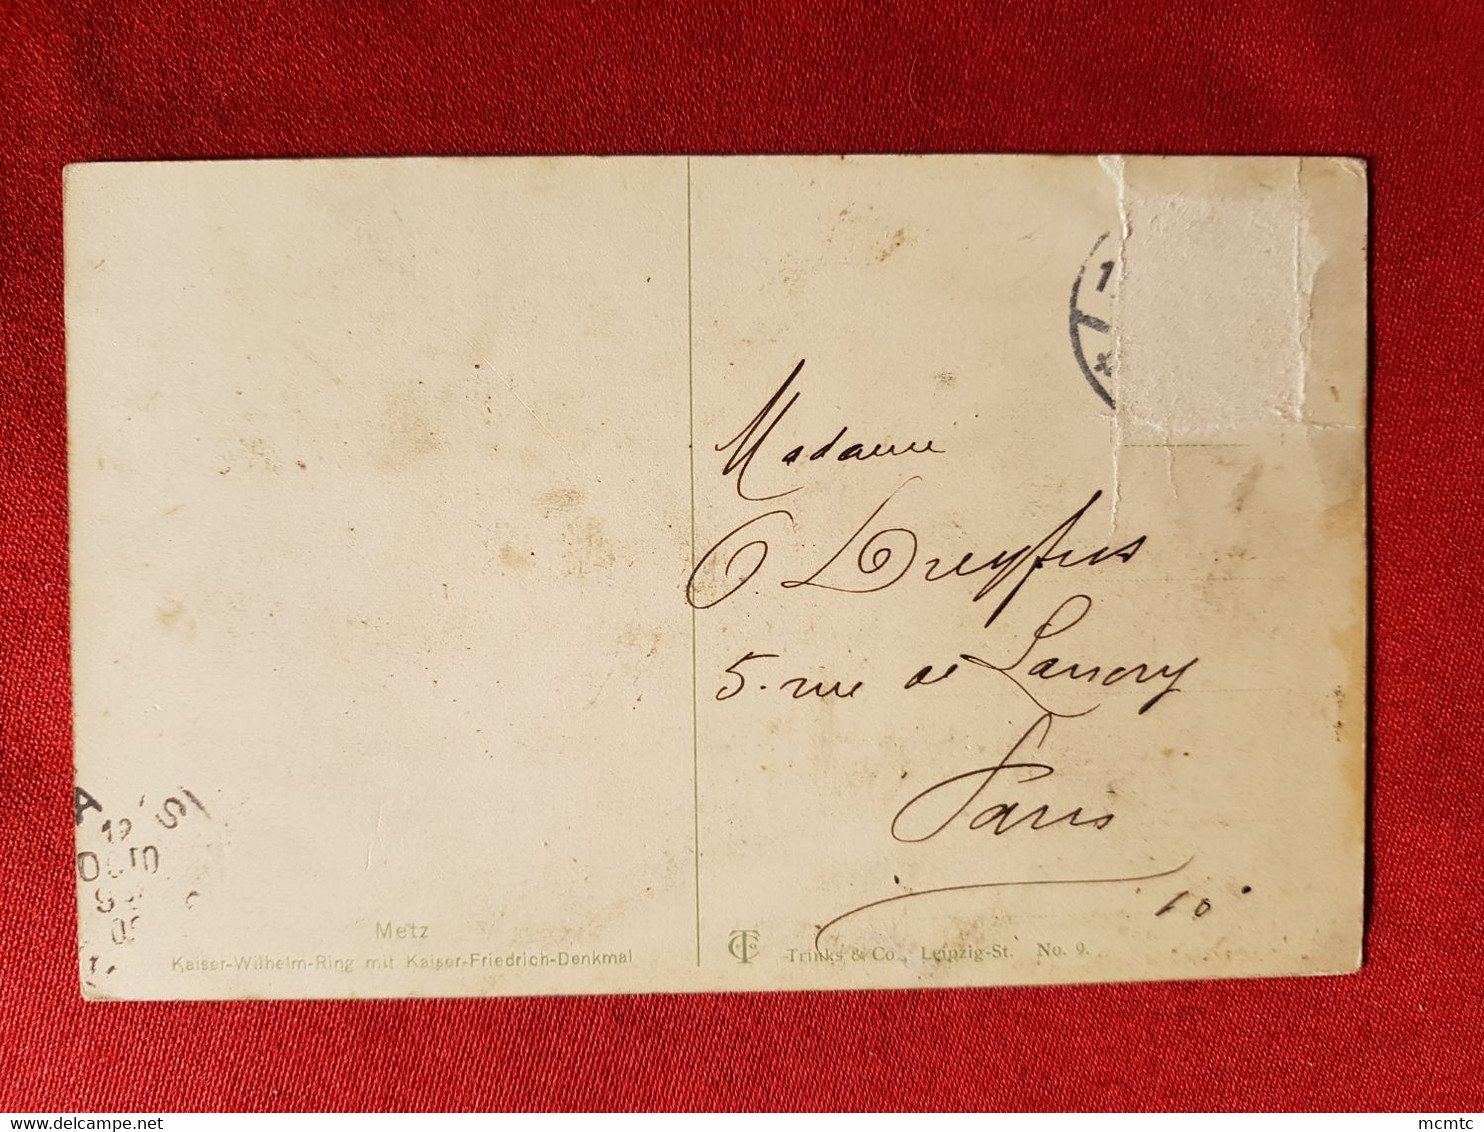 1
x
Madame
Dreyfus
5. rue de Lancry
Paris
10
A
Metz
Kaiser-Wilhelm-Ring mit Kaiser-Friedrich-Denkmal
TC Trinks & Co., Leipzig-St. No. 9.
mcmtc